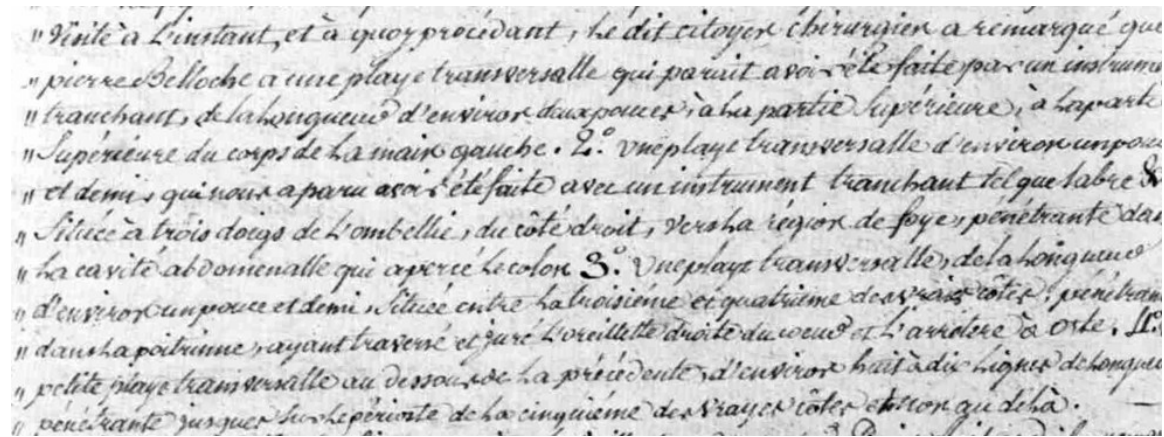 " visité à l'instant, et à quoy procédant, le dit citoyen chirurgien a remarqué que
" pierre Belloche a une playe transversalle qui parait avoir été faite par un instrume
" tranchant, de la longueur d'environ deux pouces, à la partie supérieure, à la partie
" Supérieure du corps de la main gauche. 2.° une playe transversalle d'environ un pouc
" et demi, qui nous a paru avoir été faite avec un instrument tranchant tel que sabre &
" Située à trois doigs de l'ombellie, du côté droit, vers la région de foye, pénétrante dan
" la cavité abdomenalle qui a percé le colon 3.° une playe transversalle, de la longueur
" d'environ un pouce et demi, située entre la troisiéme et quatriéme des vrais côtes, pénétran
" dans la poitrinne, ayant traversé et l'oreillette droite du coeur et l'arrètere à orte. 4.°
" petite playe transversalle au dessous de la précédente, d'environ huit à dix lignes de longueu
" pénétrante jusques sur le périoste de la cinquiéme des vrayes côtes et non au delà.